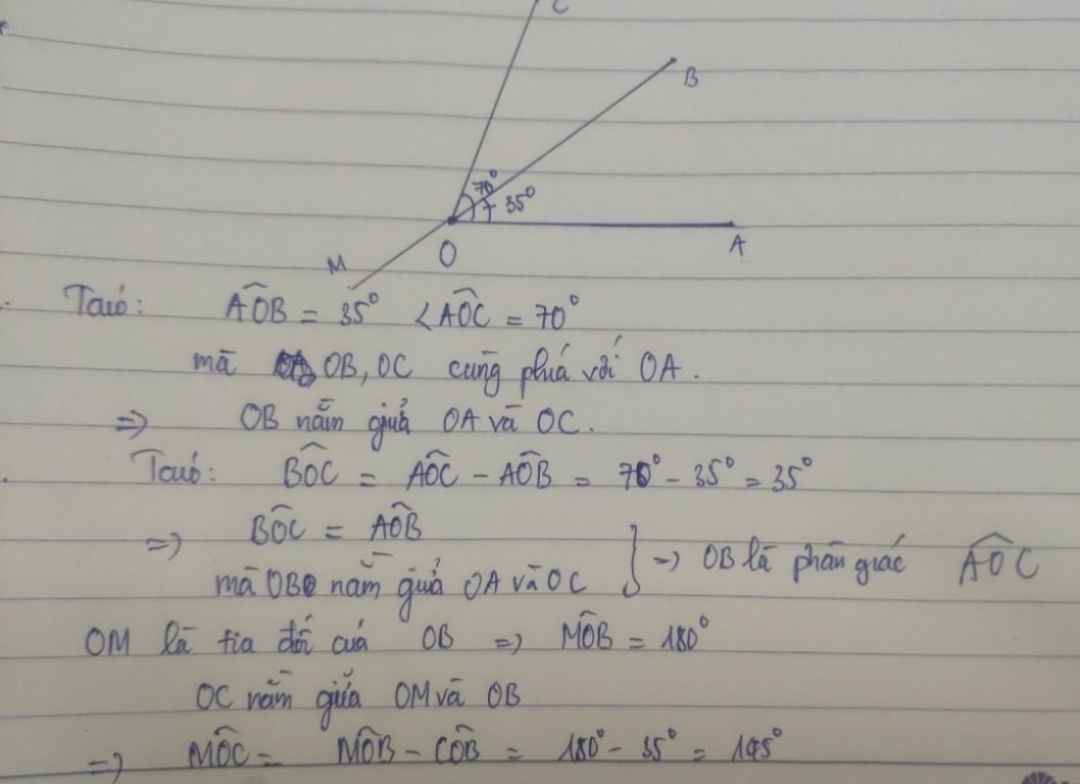 C
B
70°
35°
A
O
M
Ta có: AÔB = 35° < AÔC = 70°
mà OB, OC cùng phía với OA.
=> OB nằm giữa OA và OC.
Ta có: BÔC = AÔC - AÔB = 70° - 35° = 35°
=> BÔC = AÔB
mà OB nằm giữa OA và OC } => OB là phân giác AÔC
OM là tia đối của OB => MÔB = 180°
OC nằm giữa OM và OB
=> MÔC = MÔB - CÔB = 180° - 35° = 145°